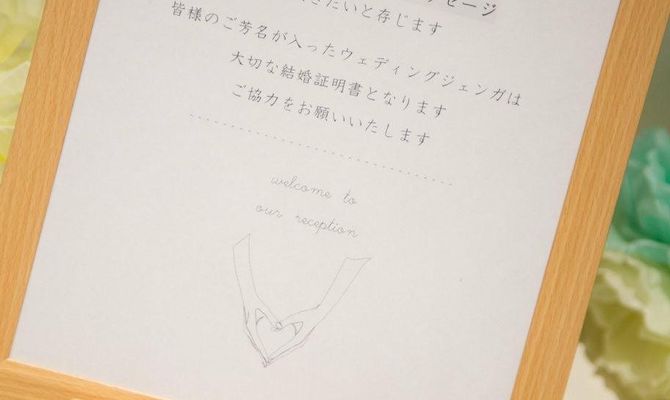 セージ
たいと存じます
皆様のご芳名が入ったウェディングジェンガは
大切な結婚証明書となります
ご協力をお願いいたします
welcome to
our reception